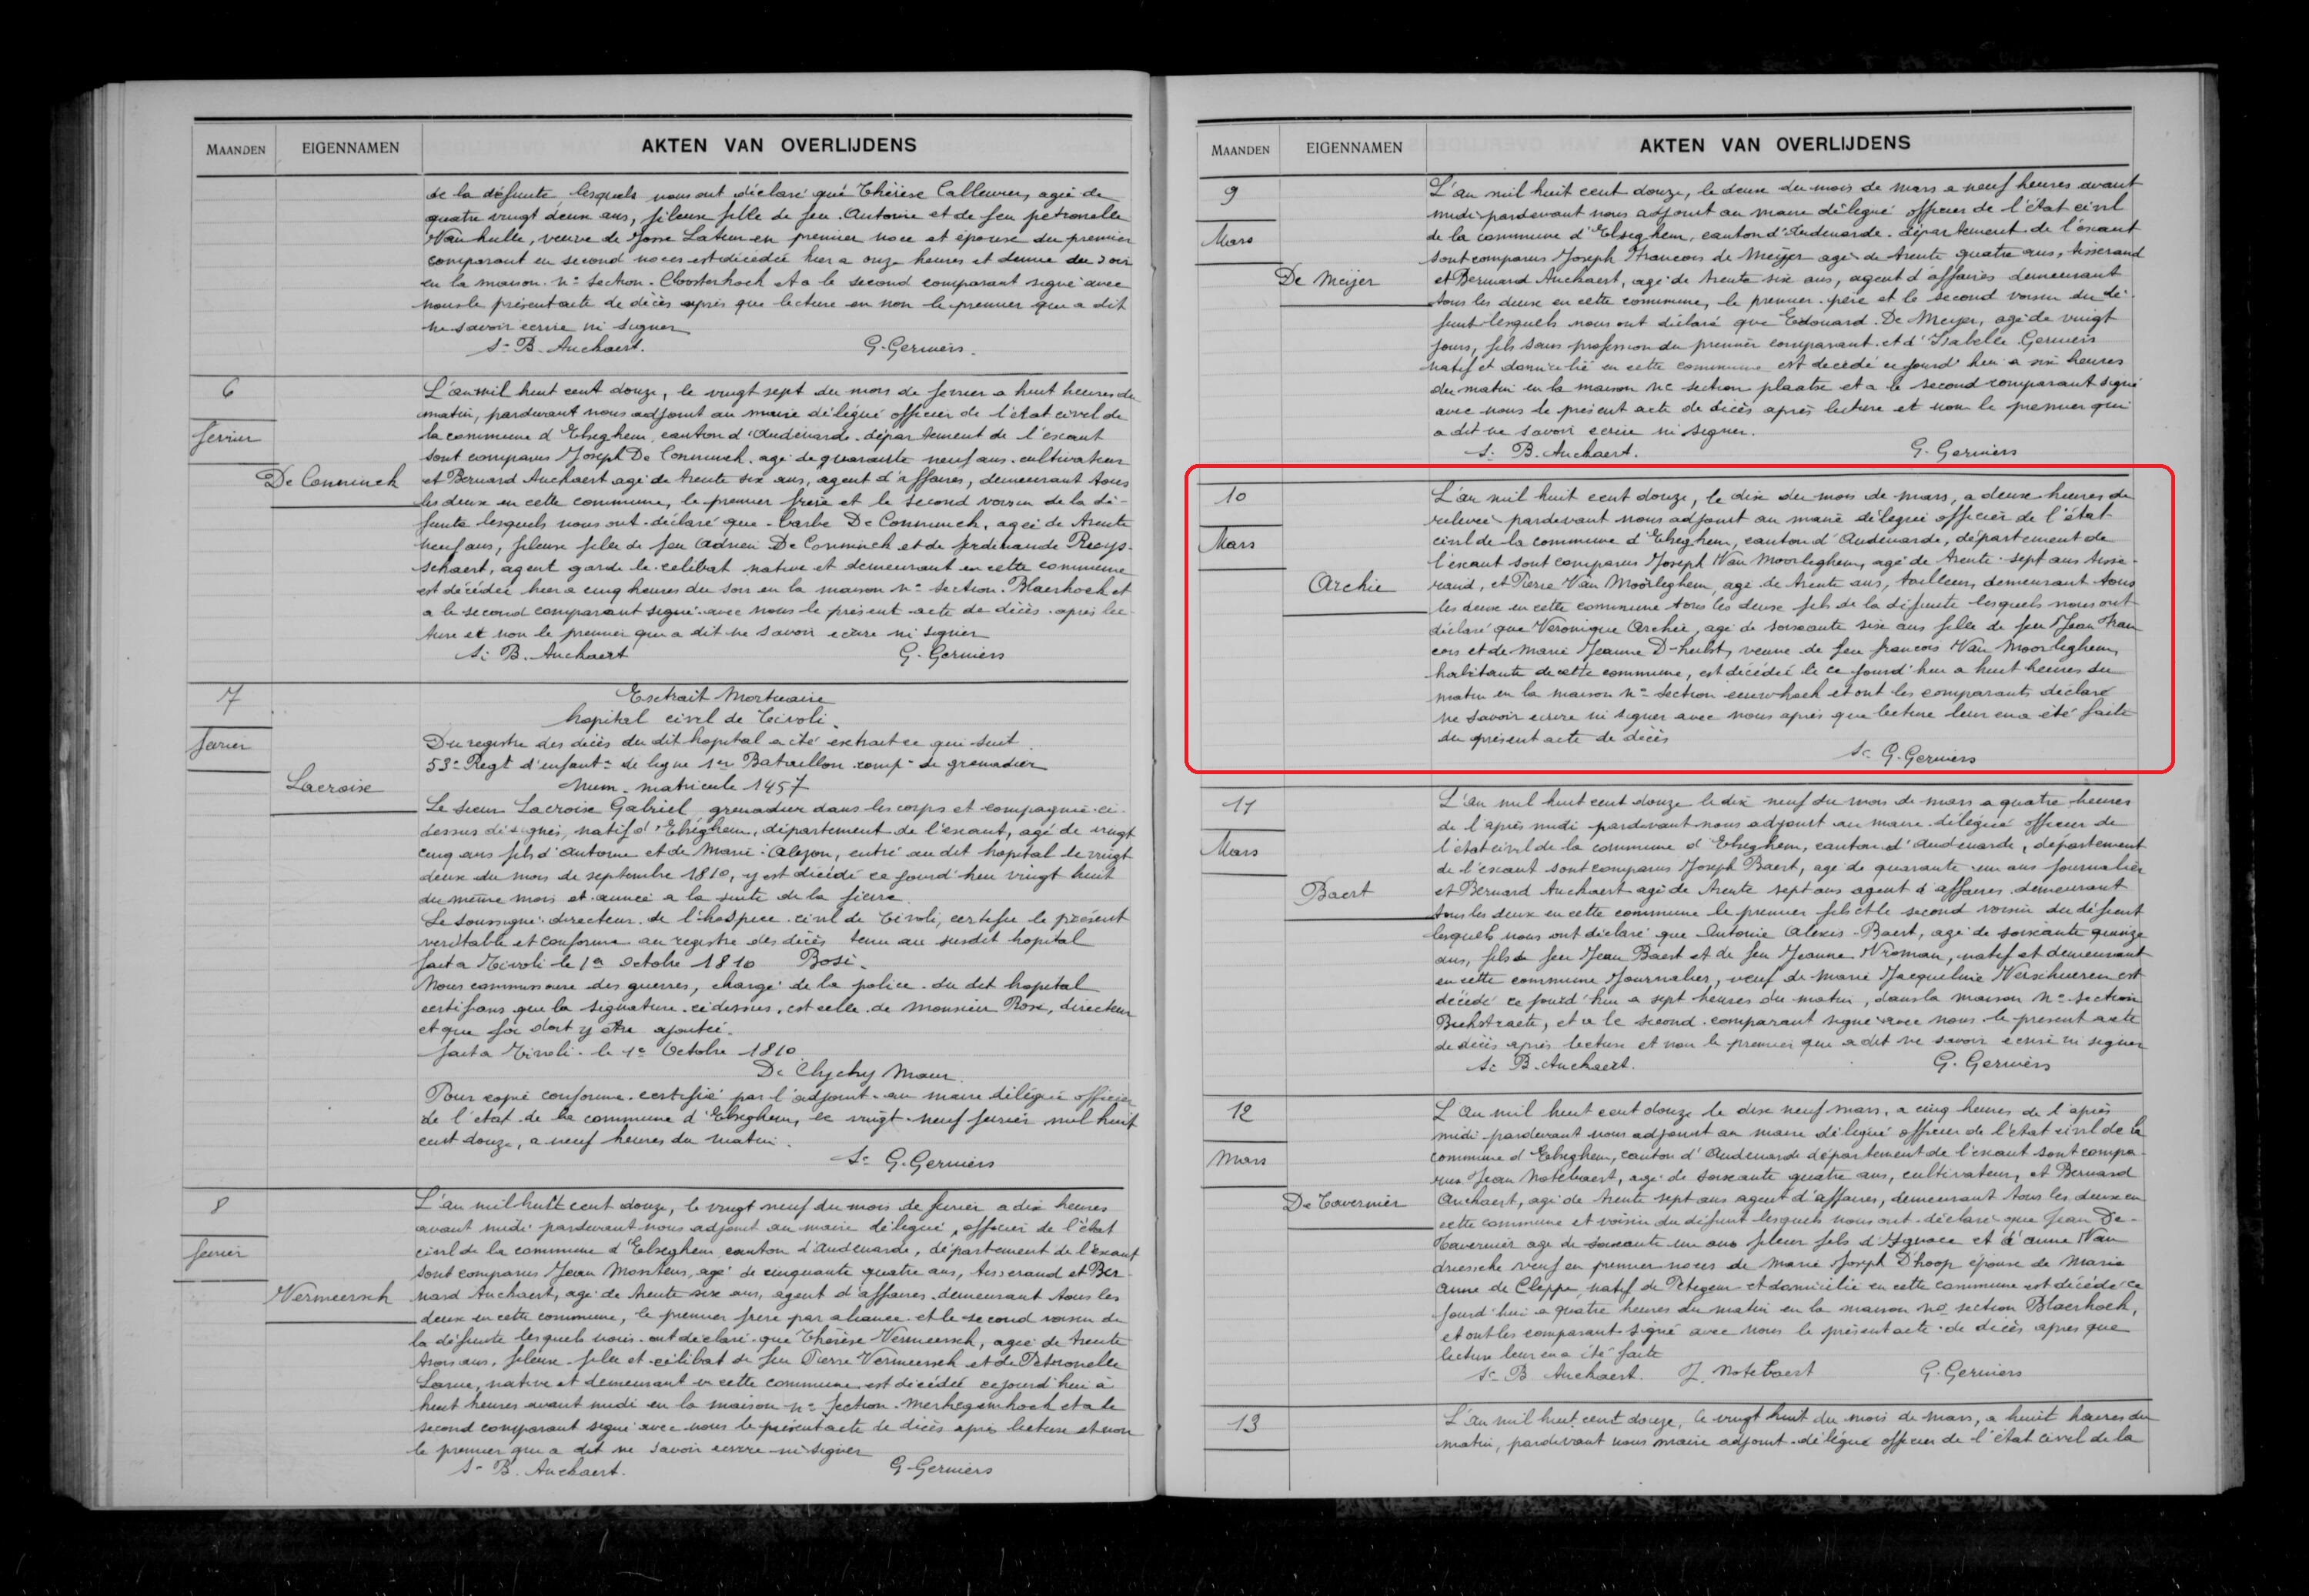 MAANDEN EIGENNAMEN AKTEN VAN OVERLIJDENS
de la défunte, lesquels nous ont déclaré qué Thérèse Calleuwen, agée de
quatre vingt deux ans, fileuse fille de feu Antoine et de feu petronelle
Van hulle, veuve de Josse Lateur en premier noce et épouse du premier
comparant en second noces est décédée hier a onze heures et demie du soir
en la maison n° section Cloosterhoek et a le second comparant signé avec
nous le présent acte de décès après que lecture en non le premier que a dit
ne savoir ecrire ni signer
S- B. Auchaert. G. Germiers.
6
fevrier
De Conninck
L'an mil huit cent douze, le vingt sept du mois de fevrier a huit heures du
matin, pardevant nous adjoint au maire délégué officier de l'état civil de
la commune d'Elseghem, canton d'Audenarde département de l'escaut
sont comparus Joseph De Conninck agé de quarante neuf ans cultivateur
et Bernard Auchaert agé de trente six ans, agent d'affaires, demeurant tous
les deux en cette commune, le premier frère et le second voisin de la dé-
funte lesquels nous ont déclaré que Barbe De Conninck, agée de trente
neuf ans, fileuse fille de feu Adrien De Conninck et de ferdinande Reys-
schaert, agent garde le celibat native et demeurant en cette commune
est décédée hier a cinq heures du soir en la maison n° section Blaerhoek et
a le second comparant signé avec nous le présent acte de décès après lec-
ture et non le premier qui a dit ne savoir ecrire ni signer
S: B. Auchaert G. Germiers
7
fevrier
Lacroix
Extrait Mortuaire
hopital civil de Tivoli
Du registre des décès du dit hopital a été extrait ce qui suit
53e Regt d'enfantie de ligne 1er Bataillon comp- de grenadier
Num- matricule 1457
Le sieur Lacroix Gabriel grenadier dans les corps et compagnie ci-
dessus désignés, natif d'Elseghem, département de l'escaut, agé de vingt
cinq ans fils d'antoine et de Marie Alexon, entré au dit hopital le vingt
deux du mois de septembre 1810, y est décédé ce jourd'hui vingt huit
du même mois et année a la suite de la fièvre.
Le soussigné directeur de l'hospice civil de Tivoli, certifie le présent
veritable et conforme au registre des décès tenu au susdit hopital
fait a Tivoli le 1er octobre 1810 Rosi.
Nous commissaire des guerres, chargé de la police du dit hopital
certifions que la signature cidessus, est celle de monsieur Rosi, directeur
et que foi doit y être ajoutée.
fait a Tivoli le 1er Octobre 1810
De Maur.
Pour copie conforme certifié par l'adjoint au maire délégué officier
de l'etat de la commune d'Elseghem, ce vingt neuf fevrier mil huit
cent douze, a neuf heures du matin.
S: G. Germiers
8
fevrier
Vermeersch
L'an mil huit cent douze, le vingt neuf du mois de fevrier a dix heures
avant midi pardevant nous adjoint au maire délégué, officier de l'état
civil de la commune d'Elseghem canton d'audenarde, département de l'escaut
sont comparus Jean Monteus, agé de cinquante quatre ans, tisserand et Ber-
nard Auchaert, agé de trente six ans, agent d'affaires demeurant tous les
deux en cette commune, le premier frere par aliance et le second voisin de
la défunte lesquels nous ont déclaré que Thérèse Vermeersch, agée de trente
trois ans, fileuse fille et célibat de feu Pierre Vermeersch et de Petronelle
Larue, native et demeurant en cette commune est décédée cejourd'hui à
huit heures avant midi en la maison n° section Merhegemhoek et a le
second comparant signé avec nous le présent acte de décès après lecture et non
le premier qui a dit ne savoir ecrire ni signer
S- B. Auchaert. G. Germiers
MAANDEN EIGENNAMEN AKTEN VAN OVERLIJDENS
9
Mars
De Meijer
L'an mil huit cent douze, le deux du mois de mars a neuf heures avant
midi pardevant nous adjoint au maire délegué officier de l'état civil
de la commune d'Elseghem, canton d'Audenarde département de l'escaut
sont comparus Joseph Francois de Meijer agé de trente quatre ans, tisserand
et Bernard Auchaert, agé de trente six ans, agent d'affaires demeurant
tous les deux en cette commune, le premier père et le second voisin du dé-
funt lesquels nous ont déclaré que Edouard De Meyer, agé de vingt
jours, fils sans profession du premier comparant et d'Isabelle Germiers
natif et domicilié en cette commune est decedé ce jourd'hui a six heures
du matin en la maison n° section plaatse et a le second comparant signé
avec nous le présent acte de décès après lecture et non le premier qui
a dit ne savoir ecrire ni signer.
S: B. Auchaert. G. Germiers
10
Mars
Archie
L'an mil huit cent douze, le dix du mois de mars, a deux heures de
relevée pardevant nous adjoint au maire délegué officier de l'état
civil de la commune d'Elseghem, canton d'Audenarde, département de
l'escaut sont comparus Joseph Van Moorleghem, agé de trente sept ans tisse-
rand, et Pierre Van Moorleghem, agé de trente ans, tailleur, demeurant tous
les deux en cette commune tous les deux fils de la défunte lesquels nous ont
déclaré que Veronique Archie, agé de soixante six ans fille de feu Jean Fran
cois et de Marie Jeanne D'hulst, veuve de feu francois Van Moorleghem,
habitante de cette commune, est décédée le ce jourd'hui a huit heures du
matin en la maison n° section eeuwhoek et ont les comparants déclaré
ne savoir ecrire ni signer avec nous après que lecture leur en a été faite
du présent acte de décès
S: G. Germiers
11
Mars
Baert
L'an mil huit cent douze le dix neuf du mois de mars a quatre heures
de l'après midi pardevant nous adjoint au maire délégué officier de
l'etat civil de la commune d'Elseghem, canton d'Audenarde, département
de l'escaut sont comparus Joseph Baert, agé de quarante un ans journalier
et Bernard Auchaert agé de trente sept ans agent d'affaires demeurant
tous les deux en cette commune le premier fils et le second voisin du défunt
lesquels nous ont déclaré que Antoine Alexis Baert, agé de soixante quinze
ans, fils de feu Jean Baert et de feu Jeanne Vroman, natif et demeurant
en cette commune Journalier, veuf de Marie Jacqueline Verschueren est
décédé ce jourd'hui a sept heures du matin, dans la maison n° section
Beekstraete, et a le second comparant signé avec nous le présent acte
de décès après lecture et non le premier que a dit ne savoir ecrire ni signer
S: B. Auchaert. G. Germiers
12
Mars
De Tavernier
L'an mil huit cent douze le dix neuf mars, a cinq heures de l'après
midi pardevant nous adjoint au maire délegué officier de l'état civil de la
commune d'Elseghem, canton d'Audenarde département de l'escaut sont compa-
rus Jean Notebaert, agé de soixante quatre ans, cultivateur, et Bernard
Auchaert, agé de trente sept ans agent d'affaires, demeurant tous les deux en
cette commune et voisin du défunt lesquels nous ont déclaré que Jean De-
Tavernier age de soixante un ans fileur fils d'Ignace et d'anne Van
driessche veuf en premier noces de Marie Joseph D'hoop épouse de Marie
Anne de Cleppe, natif de Petegem et domicilié en cette commune est décédé ce
jourd'hui a quatre heures du matin en la maison no section Blaerhoek,
et ont les comparants signé avec nous le présent acte de décès apres que
lecture leur en a été faite
S- B Auchaert. J. Notebaert G. Germiers
13
L'an mil huit cent douze, le vingt huit du mois de mars, a huit heures du
matin, pardevant nous maire adjoint délégué officier de l'état civil de la